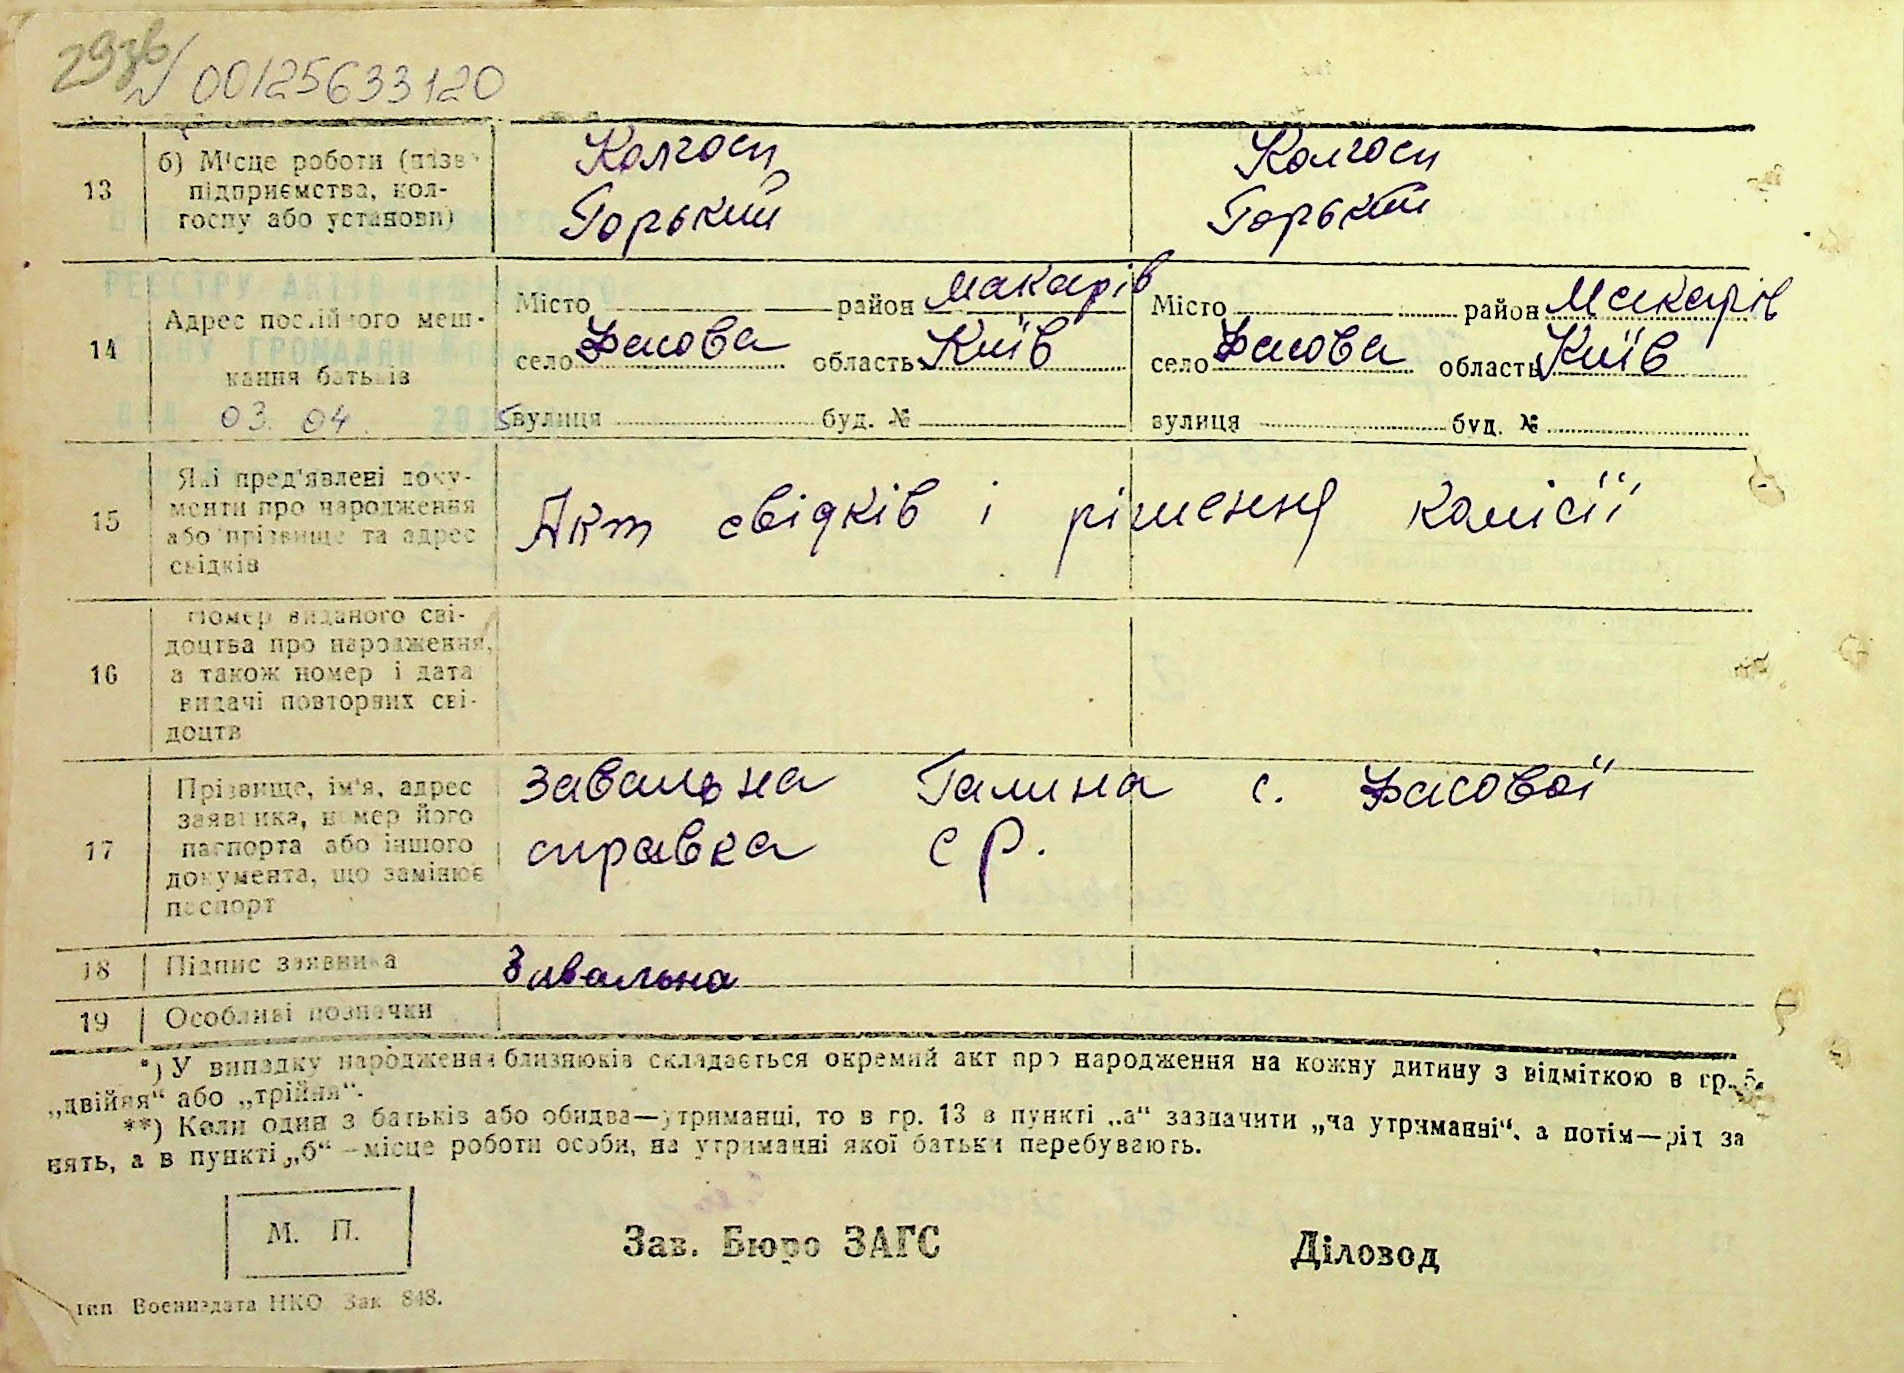 29зв
№ 00125633120
13 б) Місце роботи (назва підприємства, колгоспу або установи) Колгосп Горький Колгосп Горький
РЕЄСТРУ АКТІВ
14 Адрес постійного мешкання батьків
Місто район Макарів Місто район Макарів
село Фасова область Київ село Фасова область Київ
ГРОМАДЯН
03. 04. 2015 вулиця буд. № вулиця буд. №
15 Які пред'явлені документи про народження або прізвище та адрес свідків Акт свідків і рішення комісії
16 Номер виданого свідоцтва про народження, а також номер і дата видачі повторних свідоцтв
17 Прізвище, ім'я, адрес заявника, номер його паспорта або іншого документа, що замінює паспорт Завальна Галина с. Фасової
справка с р.
18 Підпис заявника Завальна
19 Особливі позначки
*) У випадку народження близнюків складається окремий акт про народження на кожну дитину з відміткою в гр. 5.
„двійня“ або „трійня“.
**) Коли один з батьків або обидва—утриманці, то в гр. 13 в пункті „а“ зазначити „на утриманні“, а потім—рід за
нять, а в пункті „б“ – місце роботи особи, на утриманні якої батьки перебувають.
М. П.
Зав. Бюро ЗАГС Діловод
тип Воениздата НКО Зак 848.